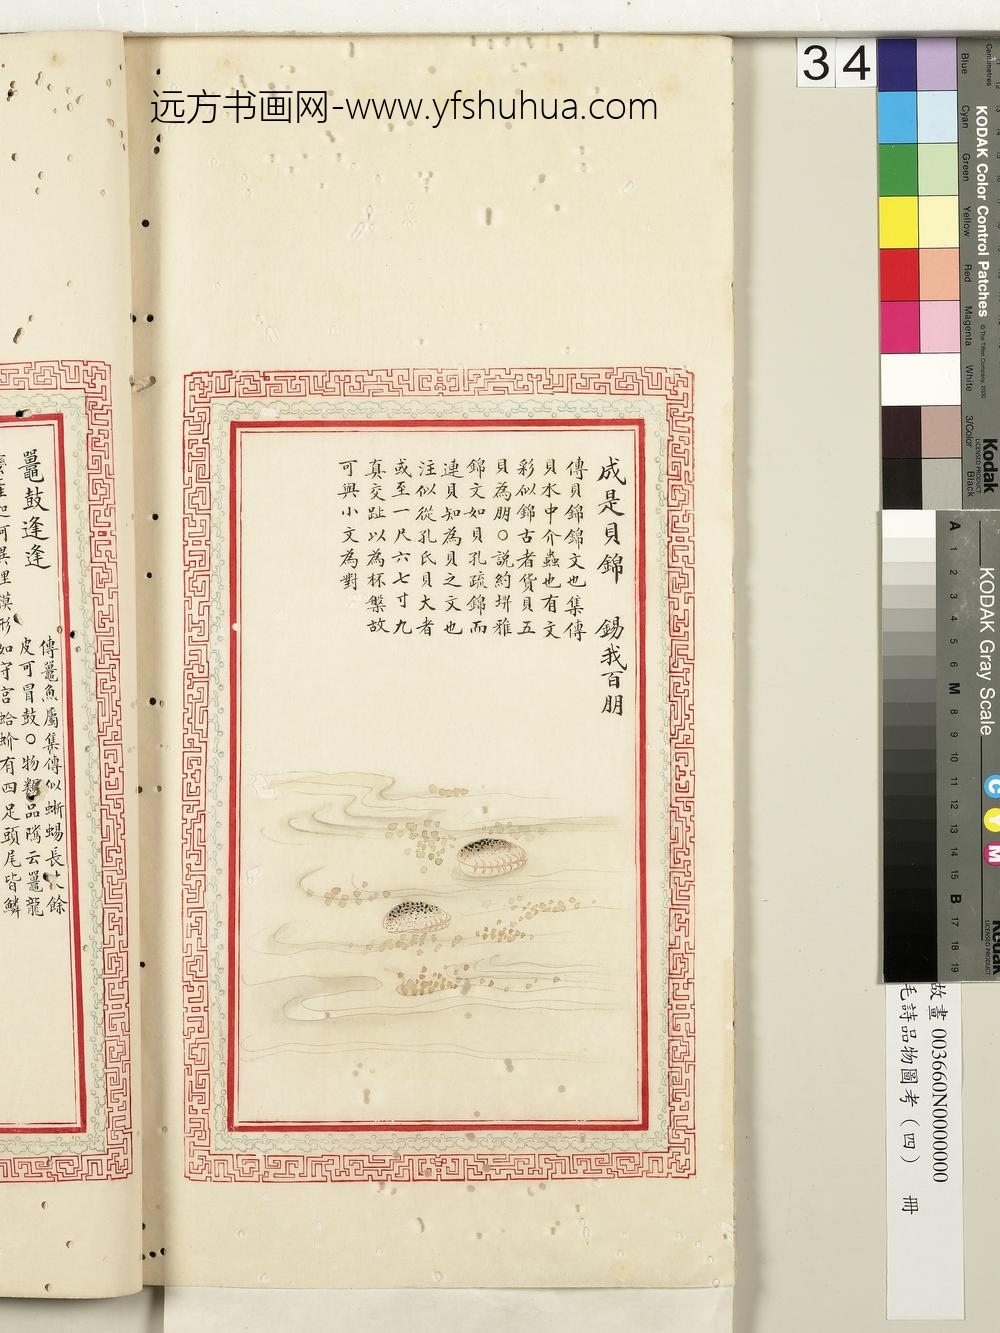 远方书画网-www.yfshuhua.com
34
成是貝錦 錫我百朋
傳貝錦錦文也集傳
貝水中介蟲也有文
彩似錦古者貨貝五
貝為朋〇說約坿雅
錦文如貝孔疏錦而
連貝知為貝之文也
注似從孔氏貝大者
或至一尺六七寸九
真交趾以為杯槃故
可與小文為對
鼉鼓逢逢
傳鼉魚屬集傳似蜥蜴長丈餘
皮可冒鼓〇物類品隲云鼉龍
形如守宮蛤蚧有四足頭尾皆鱗
Centimetres
Blue
Cyan
Green
Yellow
Red
Magenta
White
3/Color
Black
KODAK Color Control Patches
© The Tiffen Company, 2000
Kodak
LICENSED PRODUCT
KODAK Gray Scale
A 1 2 3 4 5 6 M 8 9 10 11 12 13 14 15 B 17 18 19
C
Y
M
Kodak
LICENSED PRODUCT
故畫 003660N0000000
毛詩品物圖考（四） 冊